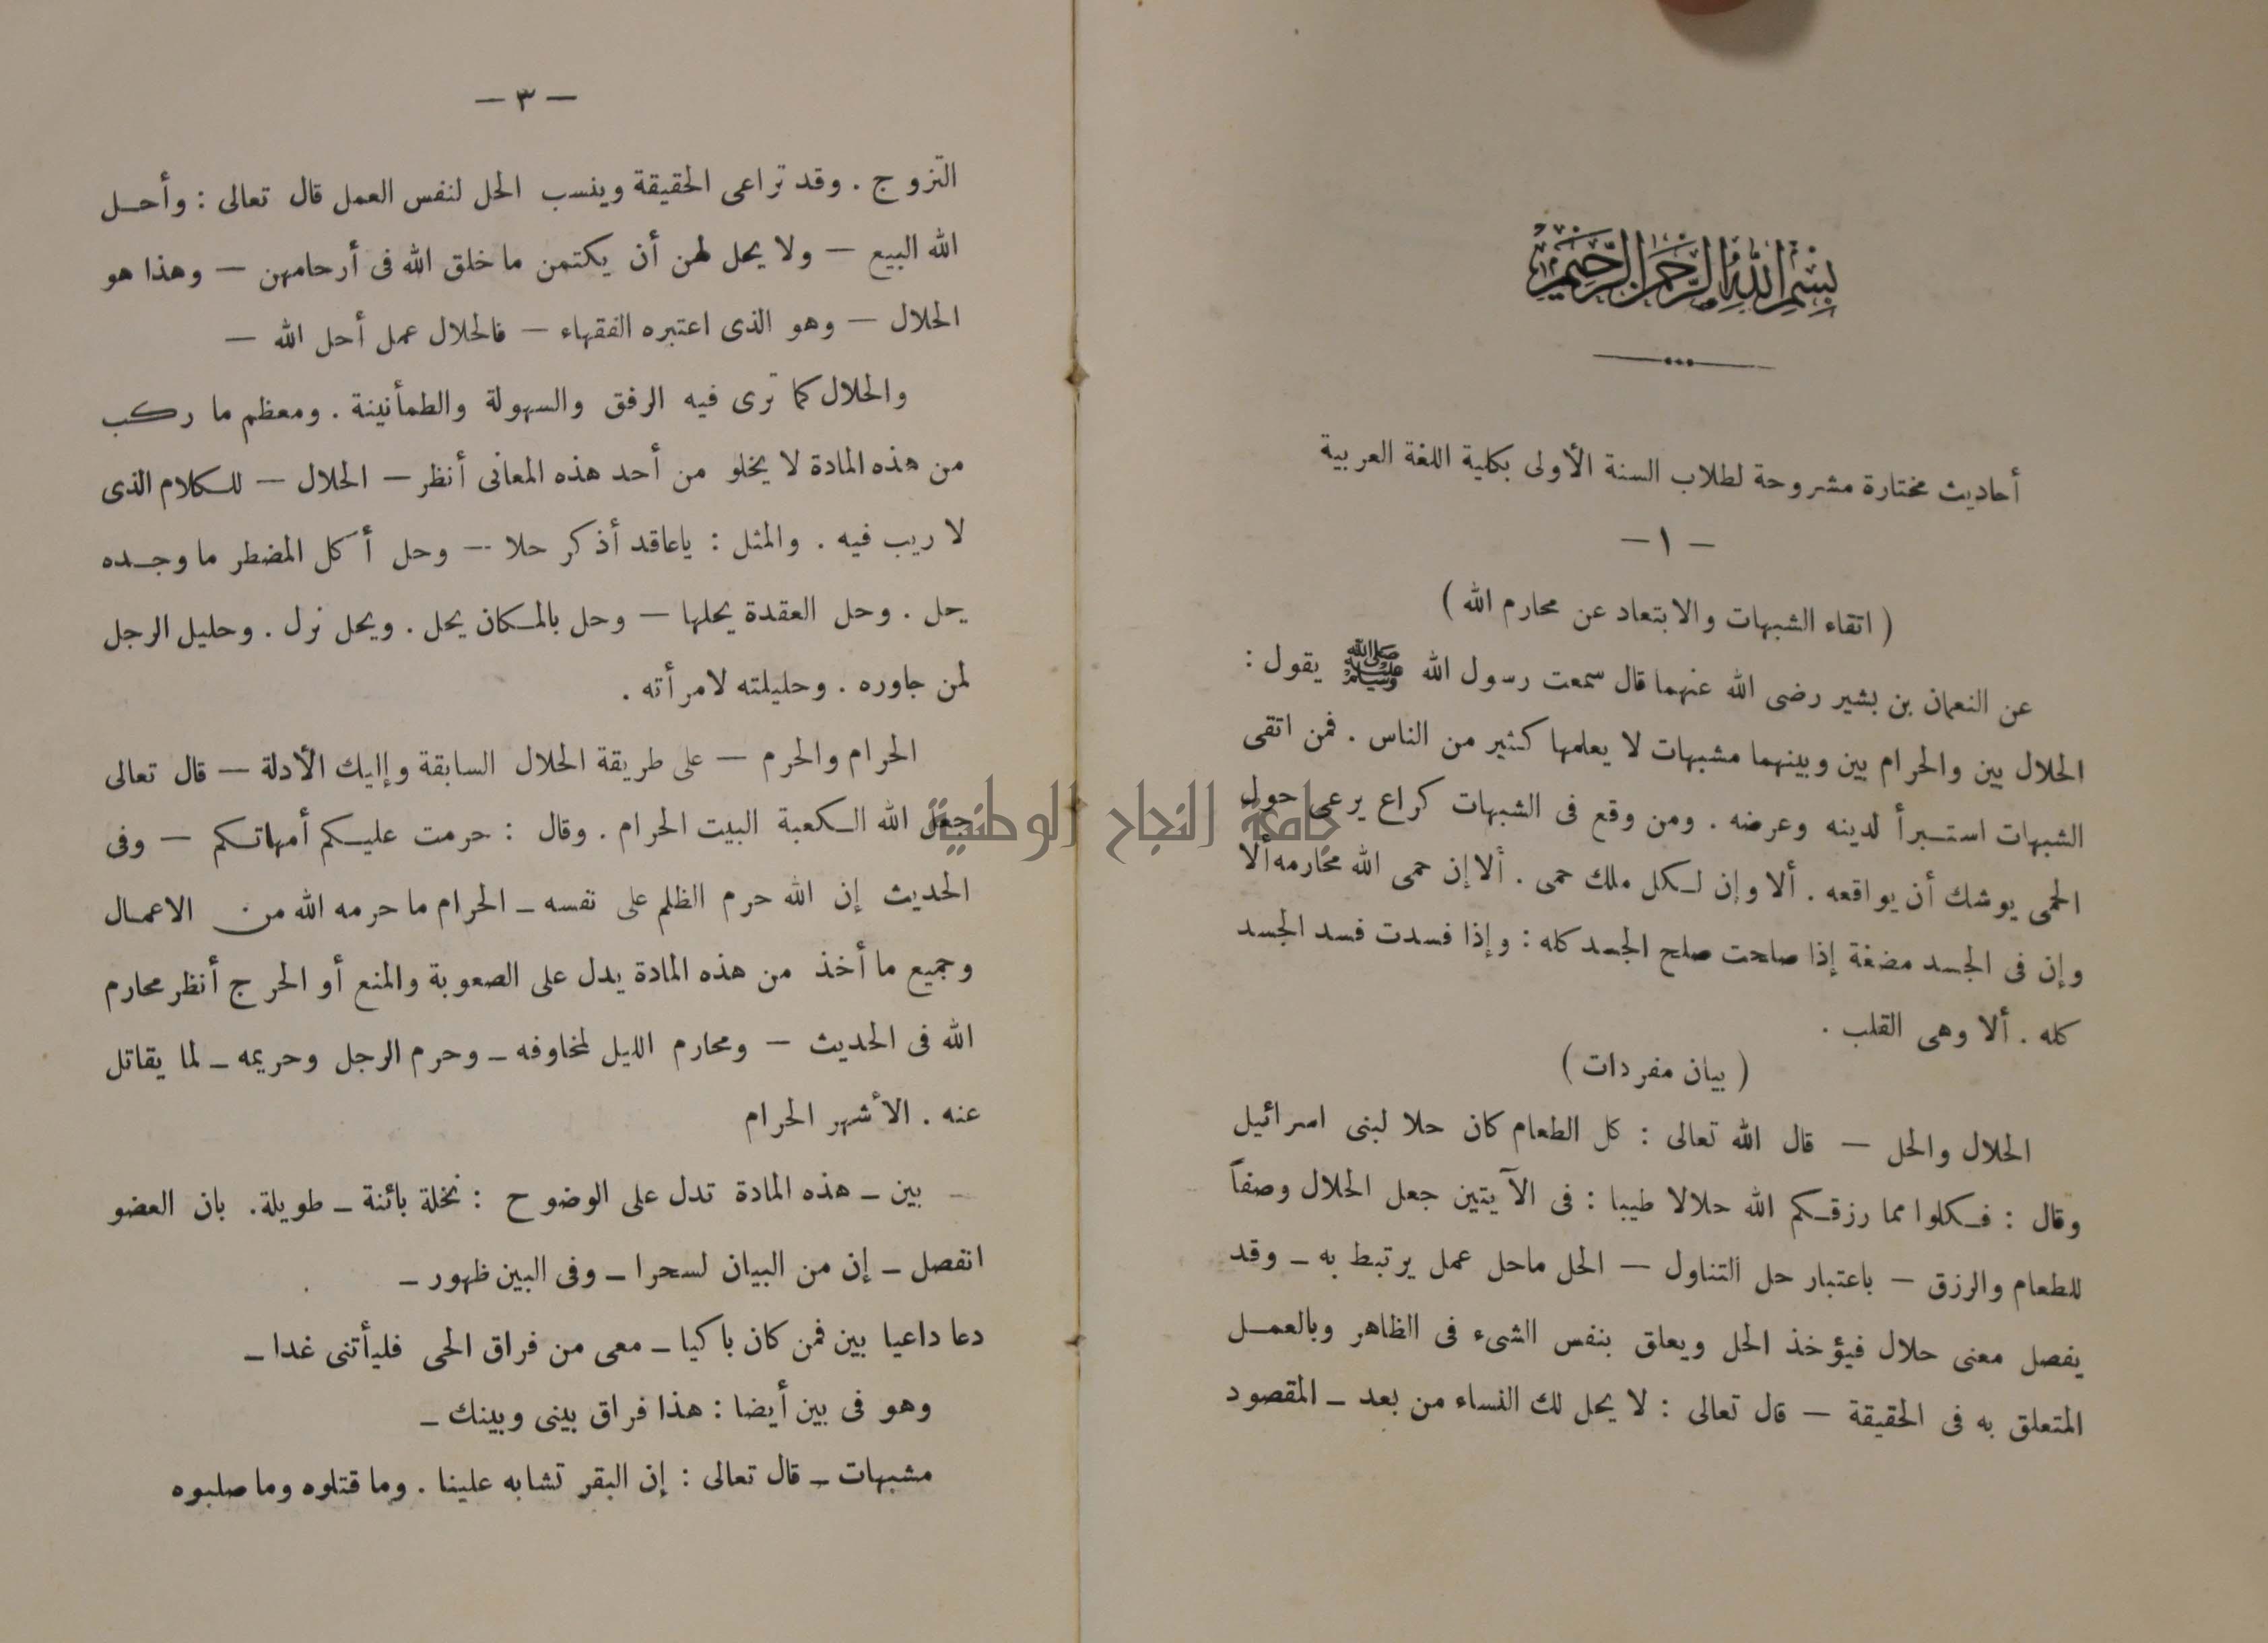 بسم الله الرحمن الرحيم
أحاديث مختارة مشروحة لطلاب السنة الأولى بكلية اللغة العربية
— ١ —
( اتقاء الشبهات والابتعاد عن محارم الله )
عن النعمان بن بشير رضى الله عنهما قال سمعت رسول الله ﷺ يقول :
الحلال بين والحرام بين وبينهما مشبهات لا يعلمها كثير من الناس . فمن اتقى
الشبهات استبرأ لدينه وعرضه . ومن وقع فى الشبهات كراع يرعى حول
الحمى يوشك أن يواقعه . ألا وإن لكل ملك حمى . ألا إن حمى الله محارمه ألا
وإن فى الجسد مضغة إذا صلحت صلح الجسد كله : وإذا فسدت فسد الجسد
كله . ألا وهى القلب .
( بيان مفردات )
الحلال والحل — قال الله تعالى : كل الطعام كان حلا لبنى اسرائيل
وقال : فكلوا مما رزقكم الله حلالا طيبا : فى الآيتين جعل الحلال وصفاً
للطعام والرزق — باعتبار حل التناول — الحل ماحل عمل يرتبط به — وقد
يفصل معنى حلال فيؤخذ الحل ويعلق بنفس الشىء فى الظاهر وبالعمل
المتعلق به فى الحقيقة — قال تعالى : لا يحل لك النساء من بعد — المقصود
— ٣ —
التزوج . وقد تراعى الحقيقة وينسب الحل لنفس العمل قال تعالى : وأحل
الله البيع — ولا يحل لهن أن يكتمن ما خلق الله فى أرحامهن — وهذا هو
الحلال — وهو الذى اعتبره الفقهاء — فالحلال عمل أحل الله —
والحلال كما ترى فيه الرفق والسهولة والطمأنينة . ومعظم ما ركب
من هذه المادة لا يخلو من أحد هذه المعانى أنظر — الحلال — للكلام الذى
لا ريب فيه . والمثل : ياعاقد أذكر حلا — وحل أكل المضطر ما وجده
يحل . وحل العقدة يحلها — وحل بالمكان يحل . ويحل نزل . وحليل الرجل
لمن جاوره . وحليلته لامرأته .
الحرام والحرم — على طريقة الحلال السابقة وإليك الأدلة — قال تعالى
جعل الله الكعبة البيت الحرام . وقال : حرمت عليكم أمهاتكم — وفى
الحديث إن الله حرم الظلم على نفسه — الحرام ما حرمه الله من الاعمال
وجميع ما أخذ من هذه المادة يدل على الصعوبة والمنع أو الحرج أنظر محارم
الله فى الحديث — ومحارم الليل لمخاوفه — وحرم الرجل وحريمه — لما يقاتل
عنه . الأشهر الحرام
بين — هذه المادة تدل على الوضوح : نخلة بائنة — طويلة. بان العضو
انفصل — إن من البيان لسحرا — وفى البين ظهور —
دعا داعيا بين فمن كان باكيا — معى من فراق الحى فليأتنى غدا —
وهو فى بين أيضا : هذا فراق بينى وبينك —
مشبهات — قال تعالى : إن البقر تشابه علينا . وما قتلوه وما صلبوه
جامعة النجاح الوطنية